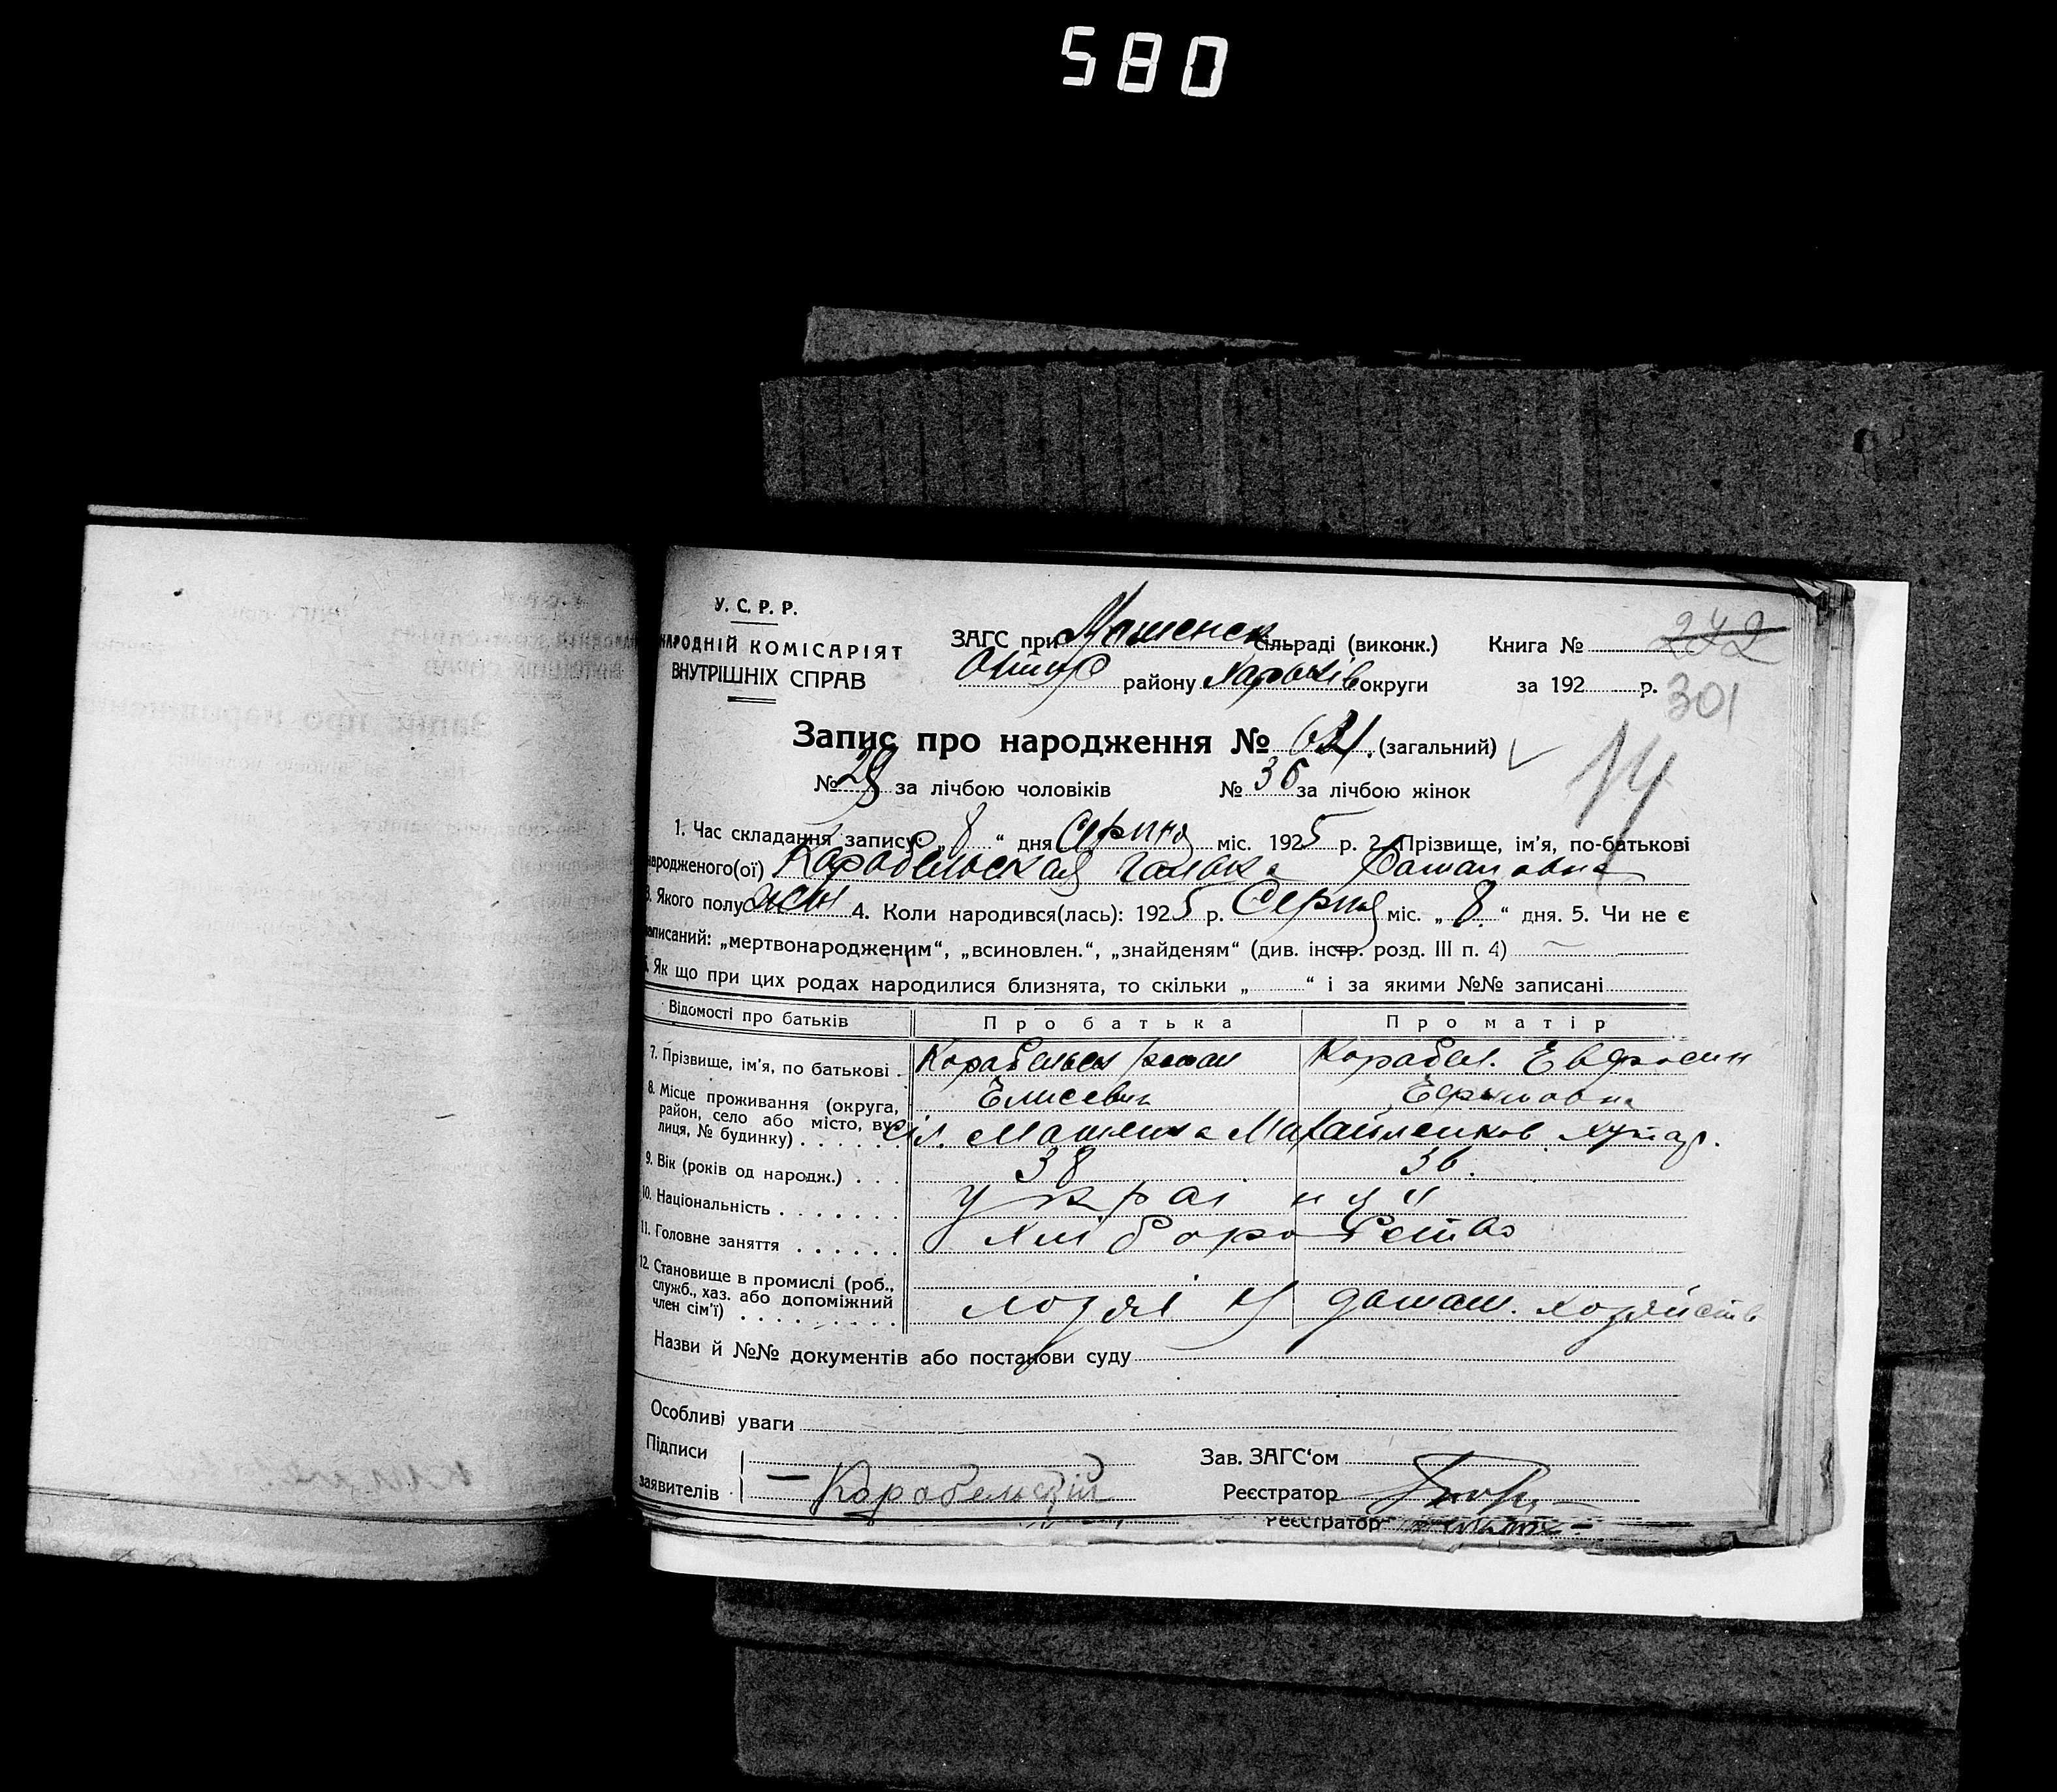 580
У. С. Р. Р.
НАРОДНІЙ КОМІСАРІЯТ
ВНУТРІШНІХ СПРАВ
ЗАГС при Мошенск сільраді (виконк.) Книга № 272
району Харьків округи за 192 р. 301
Запис про народження № (загальний) 14
№ 28 за лічбою чоловіків № 36 за лічбою жінок
1. Час складання запису: „ 8 “ дня Серпня міс. 1925 р. 2. Прізвище, ім'я, по-батькові
народженого(ої) Карабельская
3. Якого полу жен 4. Коли народився(лась): 1925 р. Серпня міс. „ 8 “ дня. 5. Чи не є
записаний: „мертвонародженим“, „всиновлен.“, „знайденям“ (див. інстр. розд. III п. 4)
6. Як що при цих родах народилися близнята, то скільки „ “ і за якими №№ записані
Відомості про батьків Про батька Про матір
7. Прізвище, ім'я, по батькові . Корабельск Роман Корабел. Евфросин
Елисевич Ефимовна
8. Місце проживання (округа, район, село або місто, вулиця, № будинку) . . . . . сіл. Машенка Михайленков хутар.
9. Вік (років од народж.) . . . 38 36.
10. Національність . . . . . . . украі нці
11. Головне заняття . . . . . . хліборобство
12. Становище в промислі (роб., служб., хаз. або допоміжний член сім'ї) . . . . . . . . . домаш. хозяйств
Назви й №№ документів або постанови суду
Особливі уваги
Підписи Зав. ЗАГС'ом
заявителів Карабельскій Реєстратор
Реєстратор